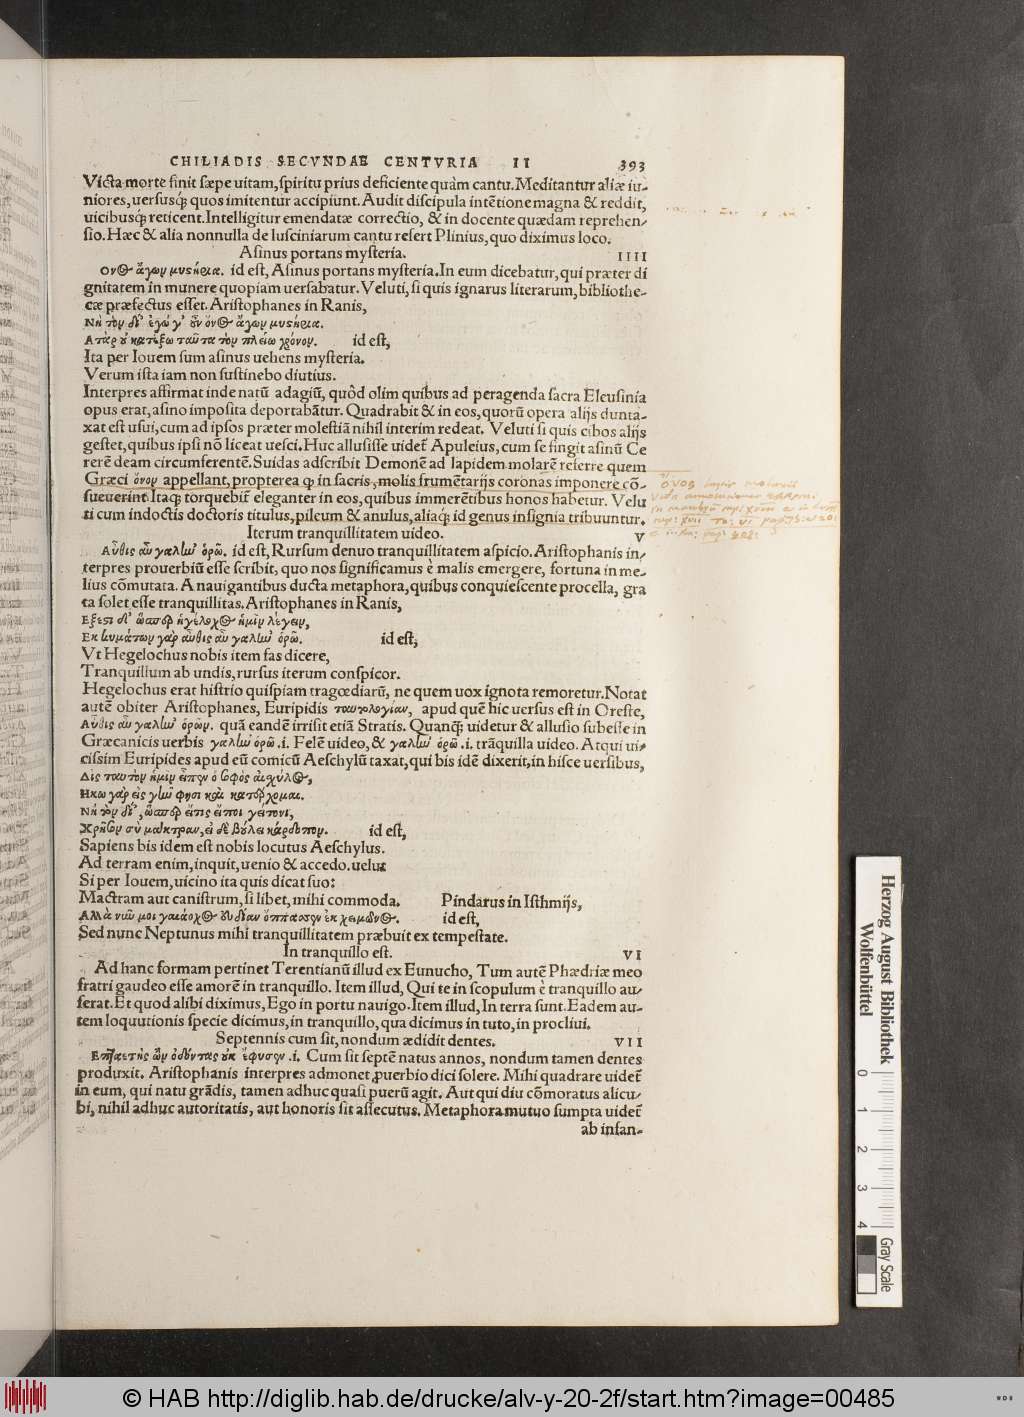 CHILIADIS SECVNDAE CENTVRIA II 393
Victa morte finit sæpe uitam, spiritu prius deficiente quàm cantu. Meditantur aliæ iu-
niores, uersusq; quos imitentur accipiunt. Audit discipula intẽtione magna & reddit,
uicibusq; reticent. Intelligitur emendatæ correctio, & in docente quædam reprehen-
sio. Hæc & alia nonnulla de lusciniarum cantu refert Plinius, quo diximus loco.
Asinus portans mysteria. IIII
Ονος ἄγων μυστήρια. id est, Asinus portans mysteria. In eum dicebatur, qui præter di
gnitatem in munere quopiam uersabatur. Veluti, si quis ignarus literarum, bibliothe-
cæ præfectus esset. Aristophanes in Ranis,
Νὴ τὸν δί' ἐγὼ γ' οὖν ὄνος ἄγων μυστήρια.
Ατὰρ οὐ καθέξω ταῦτα τὸν πλείω χρόνον. id est,
Ita per Iouem sum asinus uehens mysteria.
Verum ista iam non sustinebo diutius.
Interpres affirmat inde natũ adagiũ, quôd olim quibus ad peragenda sacra Eleusinia
opus erat, asino imposita deportabãtur. Quadrabit & in eos, quorũ opera alijs dunta-
xat est usui, cum ad ipsos præter molestiã nihil interim redeat. Veluti si quis cibos alijs
gestet, quibus ipsi nõ liceat uesci. Huc allusisse uidet̃ Apuleius, cum se fingit asinũ Ce
rerẽ deam circumferentẽ. Suidas adscribit Demonẽ ad lapidem molarẽ referre quem
Græci ὄνον appellant, propterea ꝙ in sacris, molis frumẽtarijs coronas imponere cõ-
sueuerint. Itaq; torquebit̃ eleganter in eos, quibus immerẽtibus honos habetur. Velu
ti cum indoctis doctoris titulus, pileum & anulus, aliaq; id genus insignia tribuuntur.
Iterum tranquillitatem uideo. V
Αὖθις αὖ γαλίω ὁρῶ. id est, Rursum denuo tranquillitatem aspicio. Aristophanis in-
terpres prouerbiũ esse scribit, quo nos significamus è malis emergere, fortuna in me-
lius cõmutata. A nauigantibus ducta metaphora, quibus conquiescente procella, gra
ta solet esse tranquillitas. Aristophanes in Ranis,
Εξεστι δ' ὥσπερ ἡγέλοχος ἡμῖν λέγειν,
Εκ κυμάτων γὰρ αὖθις αὖ γαλίω ὁρῶ. id est,
Vt Hegelochus nobis item fas dicere,
Tranquillum ab undis, rursus iterum conspicor.
Hegelochus erat histrio quispiam tragœdiarũ, ne quem uox ignota remoretur. Notat
autẽ obiter Aristophanes, Euripidis ταυτολογίαν, apud quẽ hic uersus est in Oreste,
Αὖθις αὖ γαλίω ὁρῶν. quã eandẽ irrisit etiã Stratis. Quanq; uidetur & allusio subesse in
Græcanicis uerbis γαλίω ὁρῶ .i. Felẽ uideo, & γαλίω ὁρῶ .i. trãquilla uideo. Atqui ui-
cissim Euripides apud eũ comicũ Aeschylũ taxat, qui bis idẽ dixerit, in hisce uersibus,
Δὶς ταυτὸν ἡμῖν εἶπεν ὁ σοφὸς αἰχύλος,
Ηκω γὰρ εἰς γίω φησὶ καὶ κατέρχομαι.
Νὴ τὸν δί', ὥσπερ εἴτις εἴποι γείτονι,
Χρῆσον σὺ μάκτραν, εἰ δὲ βούλει κάρδοπον. id est,
Sapiens bis idem est nobis locutus Aeschylus.
Ad terram enim, inquit, uenio & accedo. uelut
Si per Iouem, uicino ita quis dicat suo:
Mactram aut canistrum, si libet, mihi commoda. Pindarus in Isthmijs,
Αλλὰ νῦν μοι γαιάοχος εὐδίαν ὄππασσεν ἐκ χειμῶνος. id est,
Sed nunc Neptunus mihi tranquillitatem præbuit ex tempestate.
In tranquillo est. VI
Ad hanc formam pertinet Terentianũ illud ex Eunucho, Tum autẽ Phædriæ meo
fratri gaudeo esse amorẽ in tranquillo. Item illud, Qui te in scopulum è tranquillo au-
ferat. Et quod alibi diximus, Ego in portu nauigo. Item illud, In terra sunt. Eadem au-
tem loquutionis specie dicimus, in tranquillo, qua dicimus in tuto, in procliui.
Septennis cum sit, nondum ædidit dentes. VII
Επταετὴς ὢν ὀδόντας οὐκ ἔφυσεν .i. Cum sit septẽ natus annos, nondum tamen dentes
produxit. Aristophanis interpres admonet ꝓuerbio dici solere. Mihi quadrare uidet̃
in eum, qui natu grãdis, tamen adhuc quasi puerũ agit. Aut qui diu cõmoratus alicu-
bi, nihil adhuc autoritatis, aut honoris sit assecutus. Metaphora mutuo sumpta uidet̃
ab insan-
Herzog August Bibliothek
Wolfenbüttel
0 1 2 3 4
Gray Scale
© HAB http://diglib.hab.de/drucke/alv-y-20-2f/start.htm?image=00485